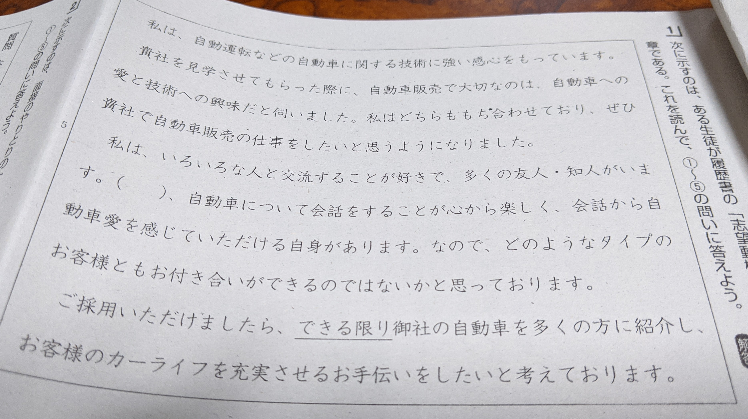 1 次に示すのは、ある生徒が履歴書の「志望動
章である。これを読んで、①〜⑤の問いに答えよう。
私は、自動運転などの自動車に関する技術に強い感心をもっています。
貴社を見学させてもらった際に、自動車販売で大切なのは、自動車への
愛と技術への興味だと伺いました。私はどちらももち合わせており、ぜひ
貴社で自動車販売の仕事をしたいと思うようになりました。
私は、いろいろな人と交流することが好きで、多くの友人・知人がいま
す。(　　)、自動車について会話をすることが心から楽しく、会話から自
動車愛を感じていただける自身があります。なので、どのようなタイプの
お客様ともお付き合いができるのではないかと思っております。
ご採用いただけましたら、できる限り御社の自動車を多くの方に紹介し、
お客様のカーライフを充実させるお手伝いをしたいと考えております。
5
2
質問